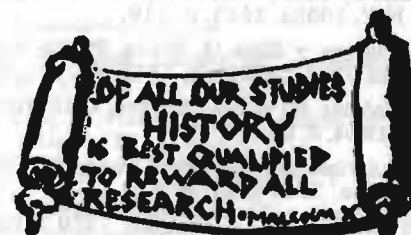 OF ALL OUR STUDIES
HISTORY
IS BEST QUALIFIED
TO REWARD ALL
RESEARCH • MALCOLM X